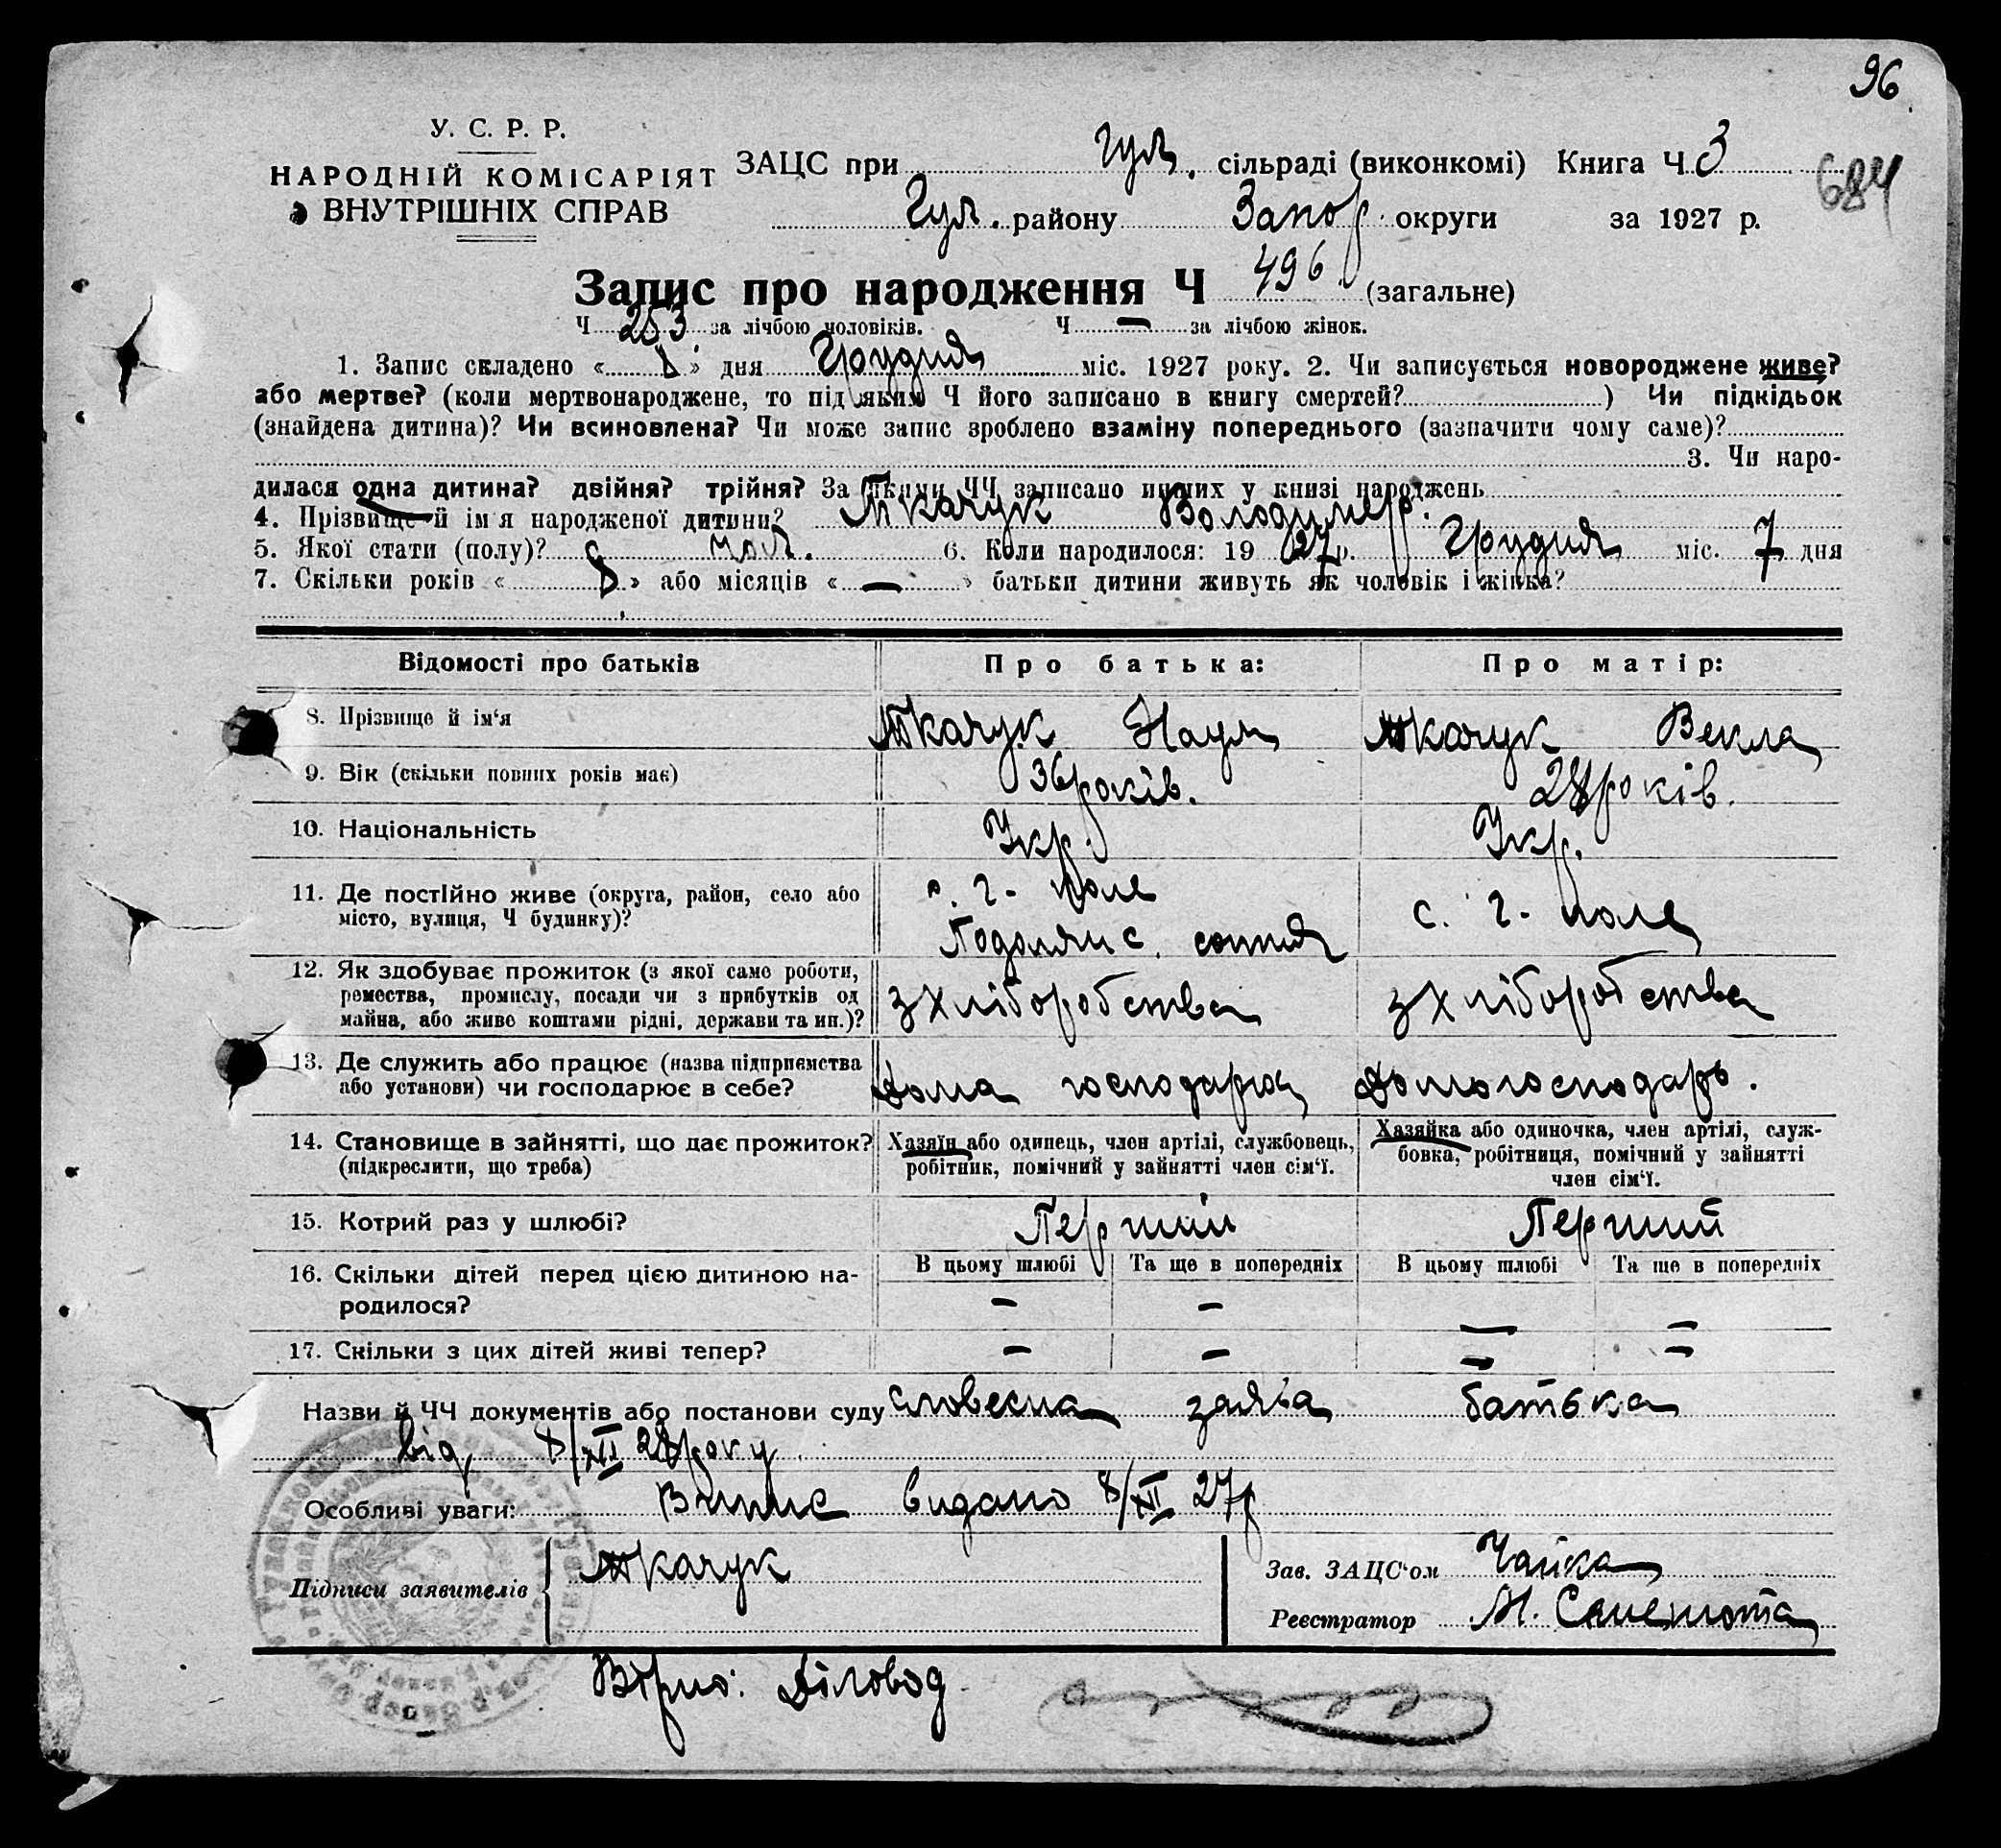 96
У. С. Р. Р.
НАРОДНІЙ КОМІСАРІЯТ
ВНУТРІШНІХ СПРАВ
ЗАЦС при Гул. сільраді (виконкомі) Книга Ч 3
684
Гул. району Запор. округи за 1927 р.
Запис про народження Ч 496 (загальне)
Ч 253 за лічбою чоловіків. Ч — за лічбою жінок.
1. Запис складено « 8 » дня Грудня міс. 1927 року. 2. Чи записується новороджене живе?
або мертве? (коли мертвонароджене, то під яким Ч його записано в книгу смертей? ) Чи підкідьок
(знайдена дитина)? Чи всиновлена? Чи може запис зроблено взаміну попереднього (зазначити чому саме)?
3. Чи наро-
дилася одна дитина? двійня? трійня? За якими ЧЧ записано инших у книзі народжень
4. Прізвище й ім'я народженої дитини? Ткачук Володимер.
5. Якої стати (полу)? чол. 6. Коли народилося: 19 27 р. Грудня міс. 7 дня
7. Скільки років « 8 » або місяців « — » батьки дитини живуть як чоловік і жінка?
Відомості про батьків Про батька: Про матір:
8. Прізвище й ім'я Ткачук Наум Ткачук Векла
9. Вік (скільки повних років має) 36 років. 28 років.
10. Національність Укр. Укр.
11. Де постійно живе (округа, район, село або
місто, вулиця, Ч будинку)?
с. г-поле
Подолянс. сотня
с. г-поле
12. Як здобуває прожиток (з якої само роботи,
ремества, промислу, посади чи з прибутків од
майна, або живе коштами рідні, держави та ин.)?
з хліборобства з хліборобства
13. Де служить або працює (назва підприємства
або установи) чи господарює в себе?
Дома господарює Домогосподарь.
14. Становище в зайнятті, що дає прожиток?
(підкреслити, що треба)
Хазяїн або одинець, член артілі, службовець,
робітник, помічний у зайнятті член сім'ї.
Хазяйка або одиночка, член артілі, служ-
бовка, робітниця, помічний у зайнятті
член сім'ї.
15. Котрий раз у шлюбі? Перший Перший
16. Скільки дітей перед цією дитиною на-
родилося?
В цьому шлюбі Та ще в попередніх В цьому шлюбі Та ще в попередніх
— — — —
17. Скільки з цих дітей живі тепер? — — — —
Назви й ЧЧ документів або постанови суду словесна заява батька
від 8/XII 28 року
Особливі уваги: Випис видано 8/XII 27 р
Підписи заявителів Ткачук
Зав. ЗАЦС'ом Чайка
Реєстратор М.
Вірно: Діловод